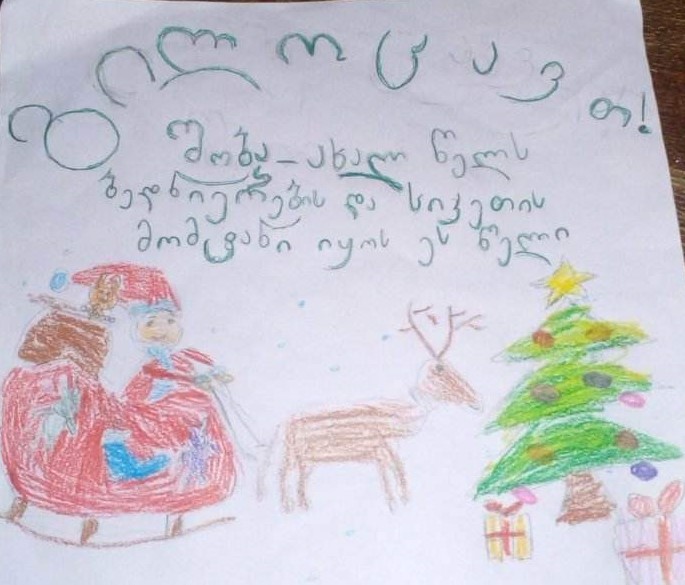 გილოცავთ!
შობა-ახალ წელს
ბედნიერების და სიკეთის
მომტანი იყოს ეს წელი